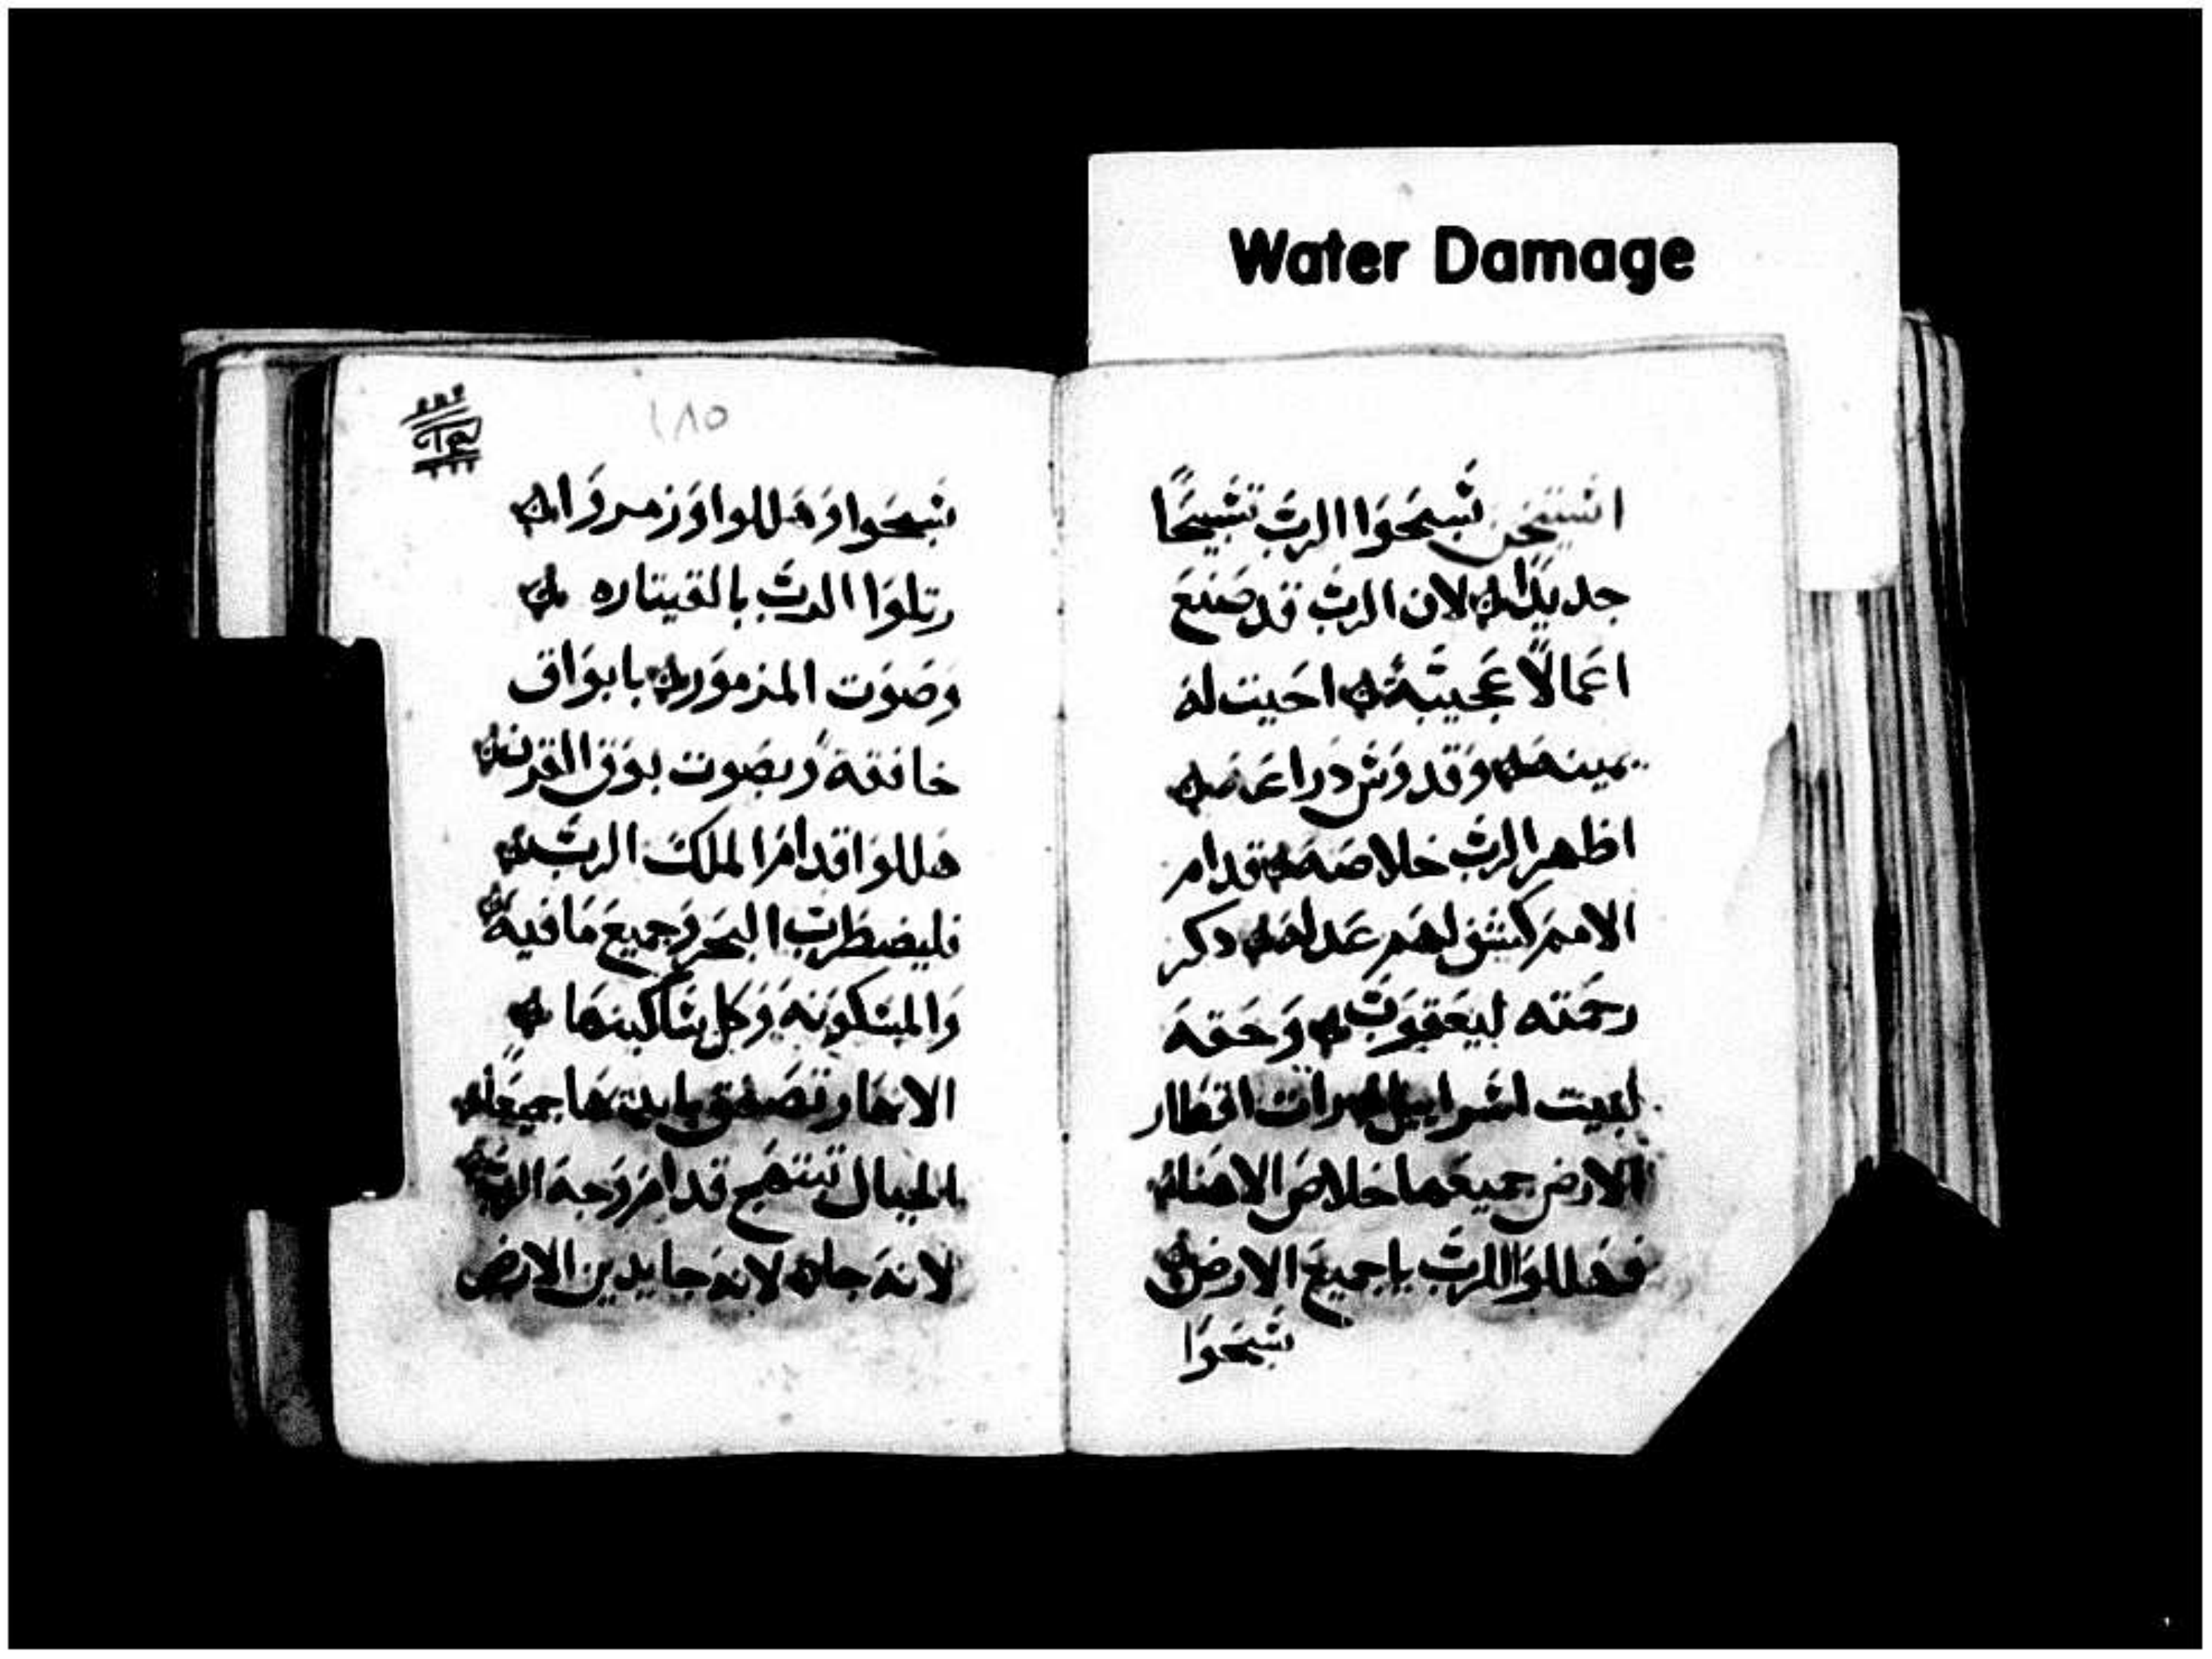 Water Damage
سبحوا الرب تسبيحًا
جديدًا لان الرب قد صنع
اعمالًا عجيبة احيت له
يمينه وقدوس دراعه
اظهر الرب خلاصه قدام
الامم كشف لهم عدله دكر
رحمته ليعقوب وحقه
لبيت اسراييل رات اقطار
الارض جميعها خلاص الاهنا
فهللوا للرب ياجميع الارض
سبحوا
١٨٥
سبحوا وهللوا وزمروا
رتلوا الرب بالقيتاره
وصوت المزمور بابواق
خافقة وبصوت بوق القرن
هللوا قدام الملك الرب
فليضطرب البحر وجميع مافيه
والمسكونه وكل ساكينها
الانهار تصفق بايديها جميعا
الجبال تبتهج قدام وجه الرب
لانه جا لانه جا يدين الارض